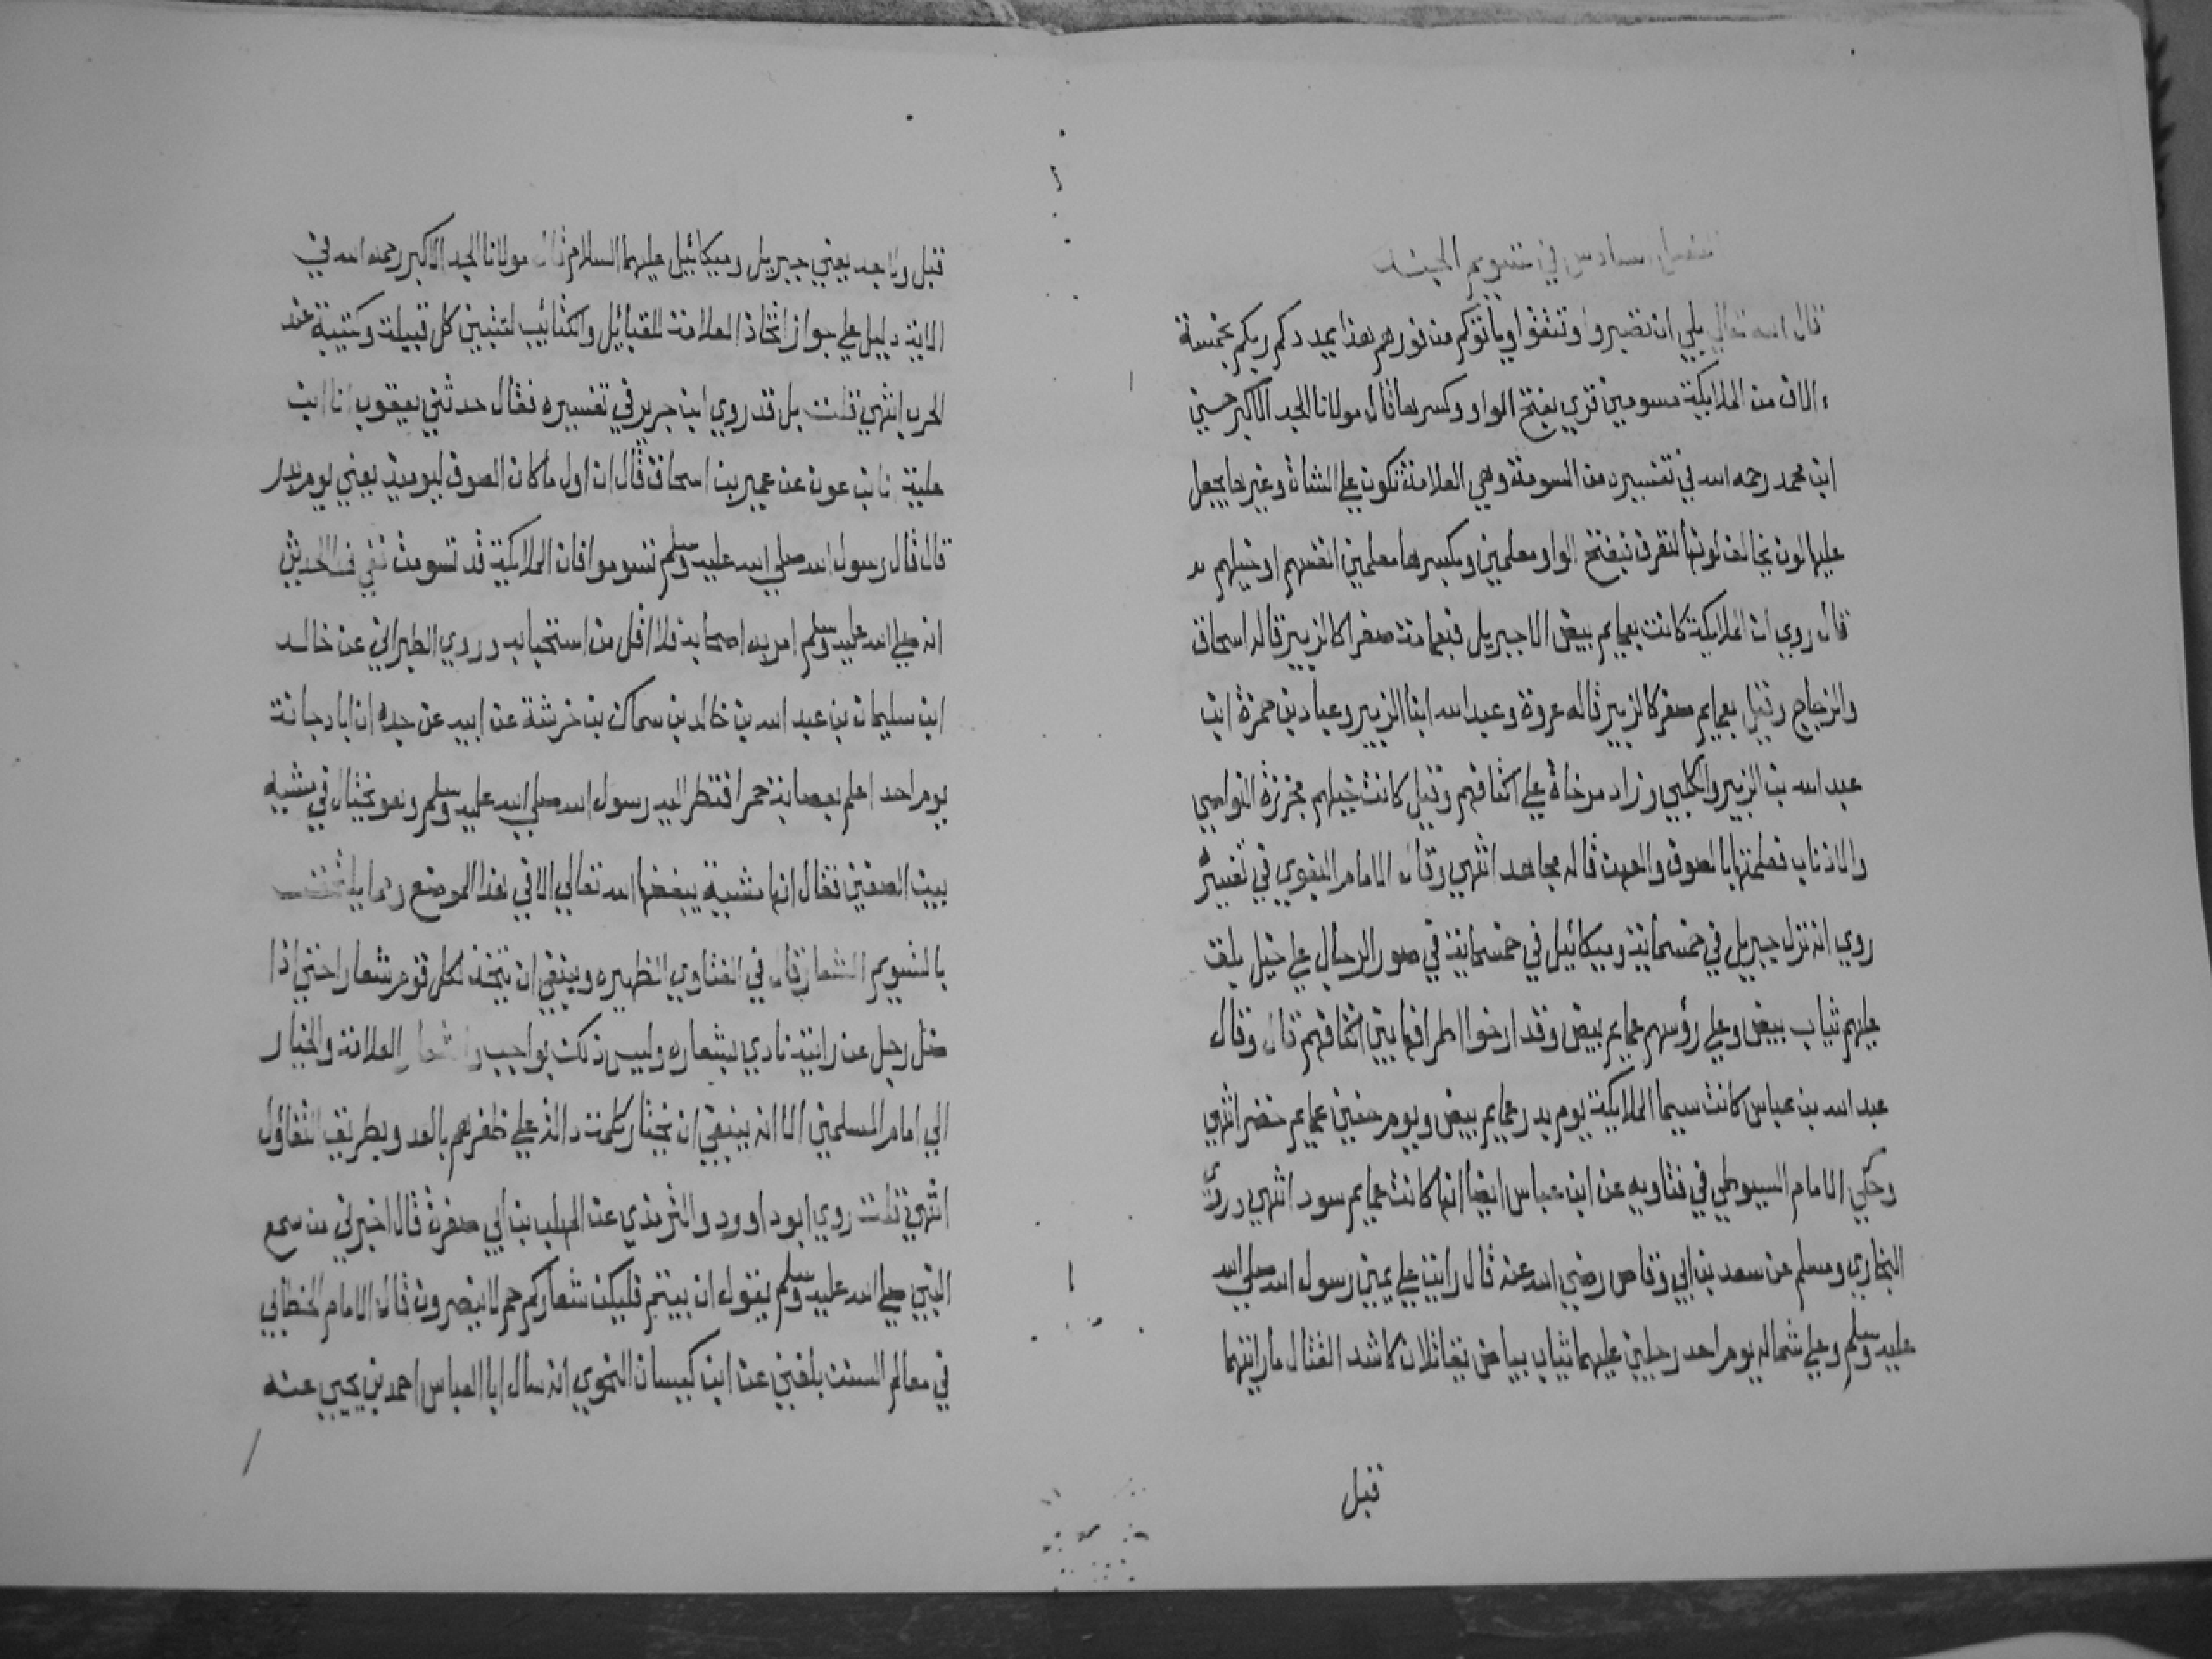 الفصل السادس في تسويم الجيش
قال الله تعالي بلي ان تصبروا وتتقوا وياتوكم من فورهم هذا يمددكم ربكم بخمسة
ءالاف من الملايكة مسومين قري بفتح الواو وكسرها قال مولانا الجد الاكبر حسين
ابن محمد رحمه الله في تفسيره من السومة وهي العلامة تكون علي الشاة وغيرها يجعل
عليها لون يخالف لونها لتعرف فبفتح الواو معلمين وبكسرها معلمين انفسهم او خيلهم
قال روي ان الملايكة كانت بعمايم بيض الا جبريل فبعمامة صفرا كالزبير قاله اسحاق
والزجاج وقيل بعمايم صفر كالزبير قاله عروة وعبد الله ابنا الزبير وعباد بن حمزة ابن
عبد الله بن الزبير والكلبي وزاد مرخاة علي اكتافهم وقيل كانت خيلهم مجززة النواصي
والاذناب فعلمتها بالصوف والعهن قاله مجاهد انتهي وقال الامام البغوي في تفسيره
روي انه نزل جبريل في خمسماية وميكائيل في خمسماية في صور الرجال علي خيل بلق
عليهم ثياب بيض وعلي رؤسهم عمايم بيض وقد ارخوا اطرافها بين اكتافهم قال وقال
عبد الله بن عباس كانت سيما الملايكة يوم بدر عمايم بيض ويوم حنين عمايم خضر انتهي
وحكي الامام السيوطي في فتاويه عن ابن عباس ايضا انها كانت عمايم سود انتهي وروي
البخاري ومسلم عن سعد بن ابي وقاص رضي الله عنه قال رايت علي يمين رسول الله صلي الله
عليه وسلم وعلي شماله يوم احد رجلين عليهما ثياب بياض يقاتلان كاشد القتال ما رايتهما
قبل
قبل ولا بعد يعني جبريل وميكائيل عليهما السلام قال مولانا الجد الاكبر رحمه الله في
الاية دليل علي جواز اتخاذ العلامة للقبائل والكتائب لتتبين كل قبيلة وكتيبة عند
الحرب انتهي قلت بل قد روي ابن جرير في تفسيره فقال حدثني يعقوب انا ابن
علية انا ابن عون عن عمير بن اسحاق قال ان اول ما كان الصوف ليوميذ يعني يوم بدر
قال قال رسول الله صلي الله عليه وسلم تسوموا فان الملايكة قد تسومت ففي هذا الحديث
انه صلي الله عليه وسلم امر به اصحابه فلا اقل من استحبابه وروي الطبراني عن خالد
ابن سليمان بن عبد الله بن خالد بن سماك بن خرشة عن ابيه عن جده ان ابا دجانة
يوم احد اعلم بعصابة حمرا فنظر اليه رسول الله صلي الله عليه وسلم وهو يختال في مشيه
بين الصفين فقال انها مشية يبغضها الله تعالي الا في هذا الموضع ومما يلتحق
بالتسويم الشعار قال في الفتاوي الظهيره وينبغي ان يتخذ لكل قوم شعارا حتي اذا
ضل رجل عن رايته نادي بشعاره وليس ذلك بواجب والشعار العلامة والخيار
الي امام المسلمين الا انه ينبغي ان يختار كلمة دالة علي ظفرهم بالعدو بطريق التفاؤل
انتهي قلت روي ابو داوود والترمذي عن المهلب بن ابي صفرة قال اخبرني من سمع
النبي صلي الله عليه وسلم يقول ان بيتم فليكن شعاركم حم لا ينصرون قال الامام الخطابي
في معالم السنن بلغني عن ابن كيسان النحوي انه سال ابا العباس احمد بن يحيي عنه